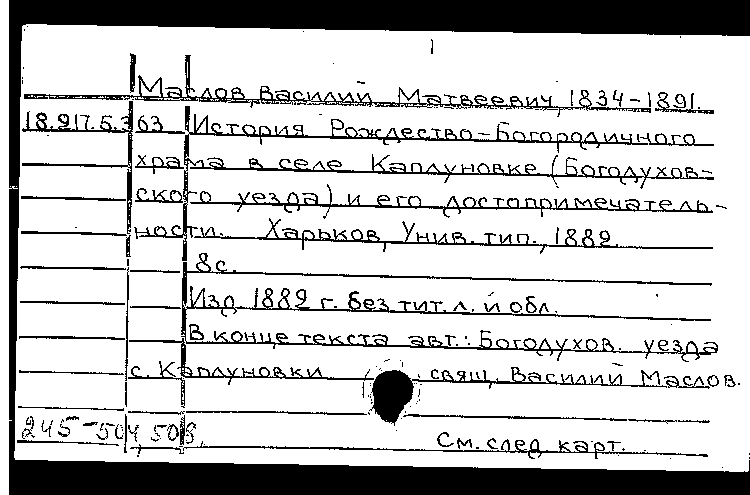 Маслов, Василий Матвеевич, 1834-1891.
18.917.5.363 История Рождество-Богородичного
храма в селе Каплуновке (Богодухов-
ского уезда) и его достопримечатель-
ности. Харьков, Унив. тип., 1882.
8с.
Изд. 1882 г. без тит. л. и обл.
В конце текста авт.: Богодухов. уезда
с. Каплуновки свящ. Василий Маслов.
245-504, 508, См. след. карт.